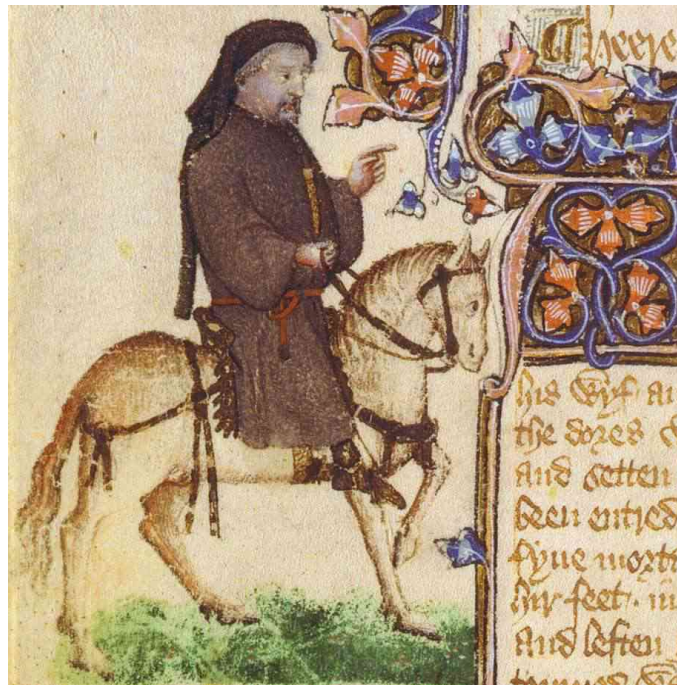 Heere
his wyf an
the dores
and setten
been entred
fyue
hir feet
And leften